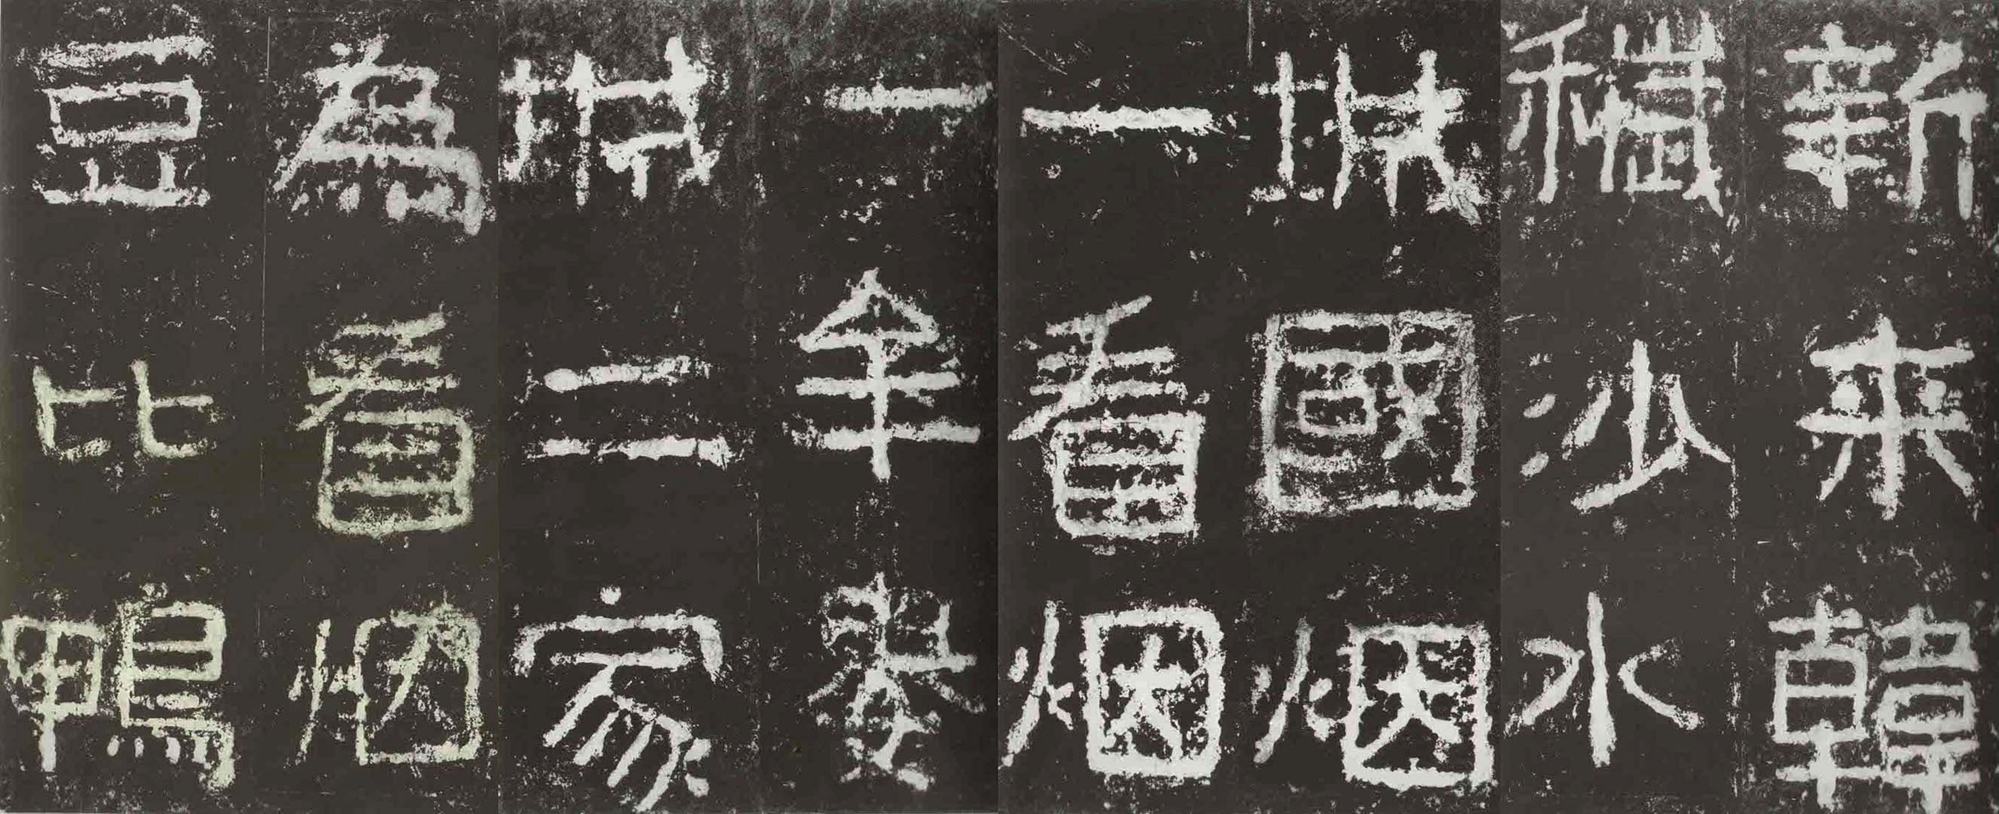 新来韓
穢沙水
城國烟
一看烟
一牟婁
城二家
為看烟
豆比鴨